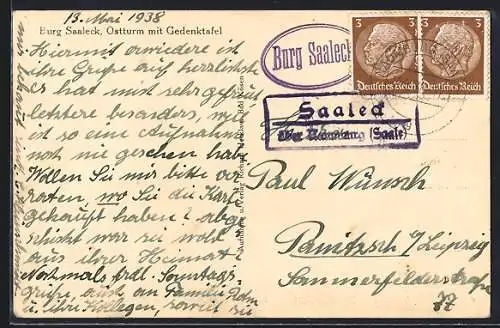 13. Mai 1938
Burg Saaleck, Ostturm mit Gedenktafel
Hiermit erwidere ich
ihre Grüße auf herzlichste
es hat mich sehr gefreut
letztere besonders, weil
ist so eine Aufnahme
noch nie gesehen habe
Wollen Sie mir bitte ver-
raten, wo Sie die Karte
gekauft haben? abge-
schickt war sie wohl
aus ihrer Heimat?
Nochmals frdl. Sonntags-
grüße, auch an Familie
u. ihre Kollegen, soweit sie
Burg Saaleck
3
Deutsches Reich
3
Deutsches Reich
Saaleck
über Naumburg (Saale)
Paul Wünsch
Panitzsch b/Leipzig
Sommerfelderstraße
77